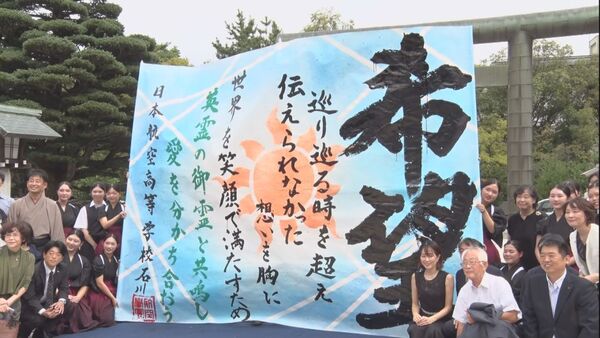 希望
巡り巡る時を超え
伝えられなかった
想いを胸に
世界を笑顔で満たすため
英霊の御霊と共鳴し
愛を分かち合おう
日本航空高等学校石川